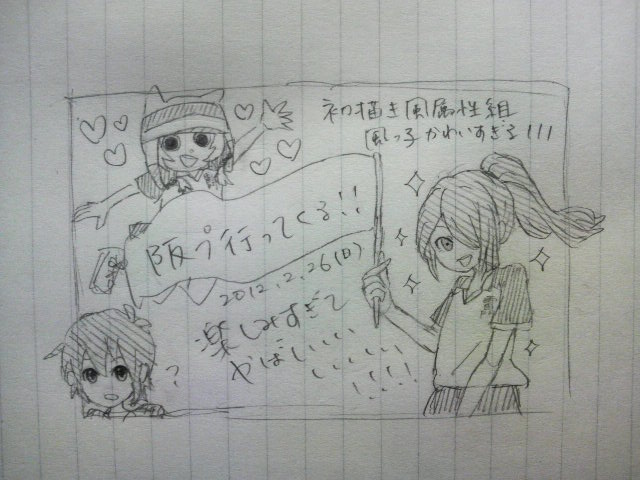 初描き風属性組
風っ子かわいすぎる!!!
阪プ行ってくる!!
2012.2.26(日)
楽しみすぎて
やばいいい
いいいい
!!!!
?